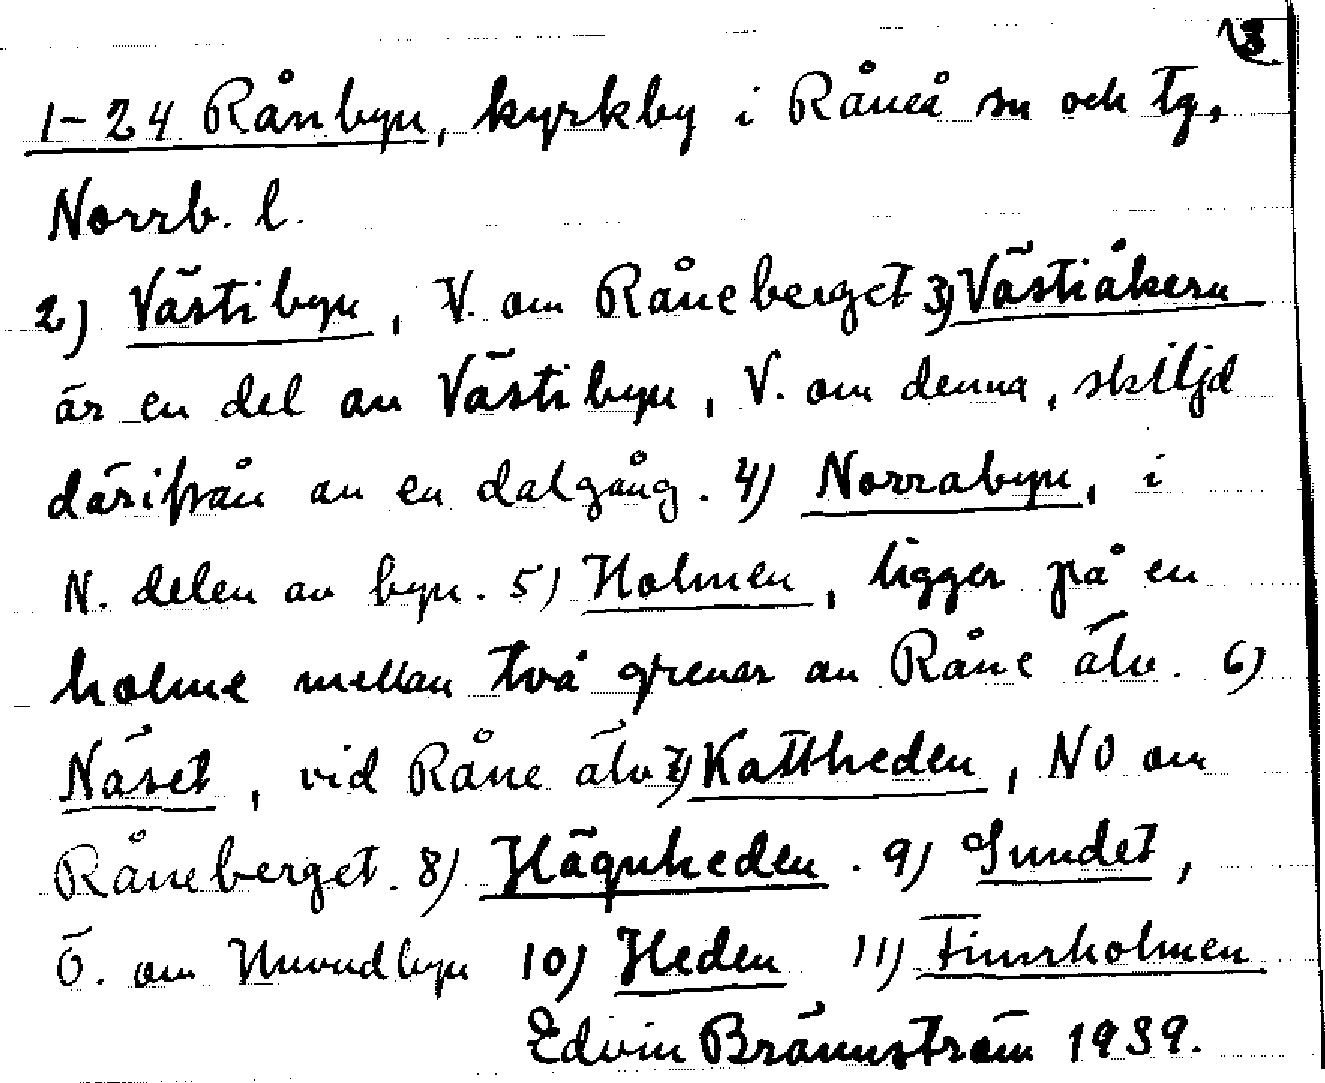 1-24 Rånbyn, kyrkby i Råneå sn och tg,
Norrb. l.
2) Västibyn, V. om Råneberget 3) Västiåkern
är en del av Västibyn, V. om denna, skiljd
därifrån av en dalgång. 4) Norrabyn, i
N. delen av byn. 5) Holmen, ligger på en
holme mellan två grenar av Råne älv. 6)
Näset, vid Råne älv 7) Kattheden, NO om
Råneberget. 8) Hägnheden. 9) Sundet,
Ö. om Huvudbyn 10) Heden 11) Finnholmen
Edvin Brännström 1939.